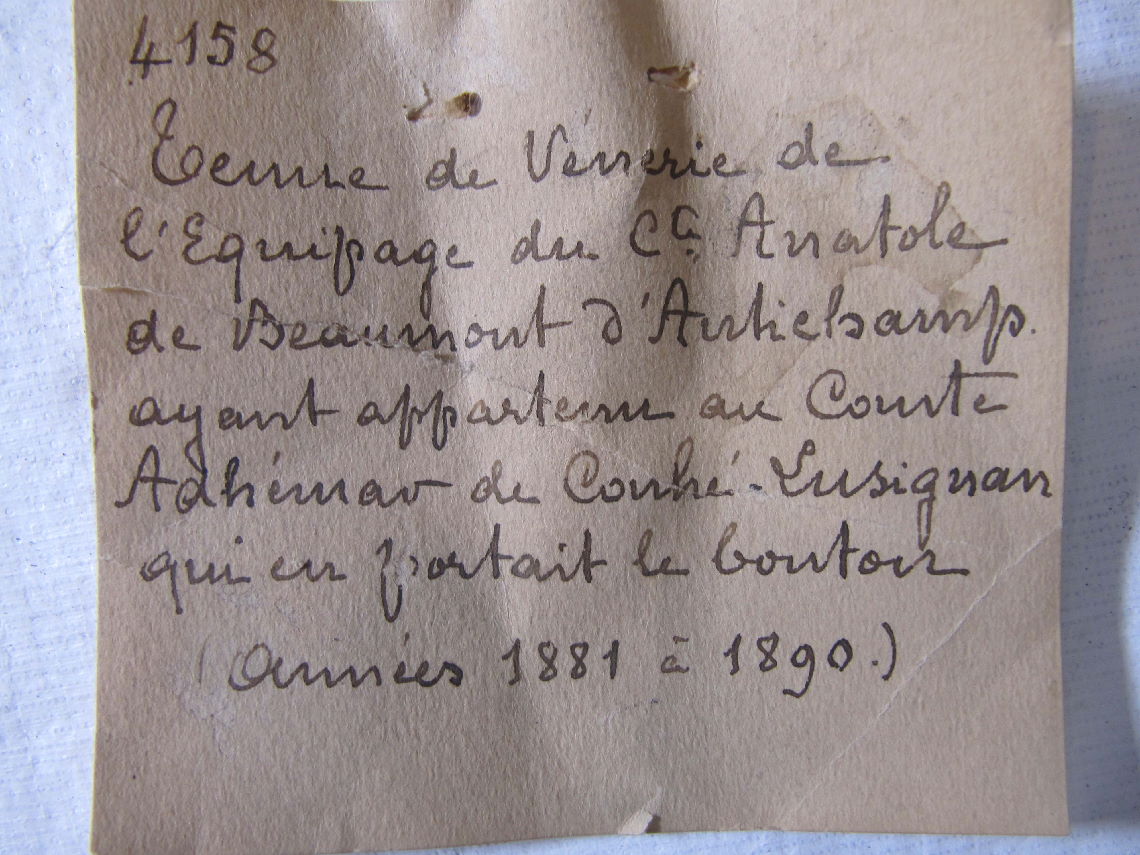 4158
Tenue de Vénerie de
l'Equipage du Cte Anatole
de Beaumont d'Autichamp.
ayant appartenu au Comte
Adhémar de Couhé-Lusignan
qui en portait le bouton
(Années 1881 à 1890.)